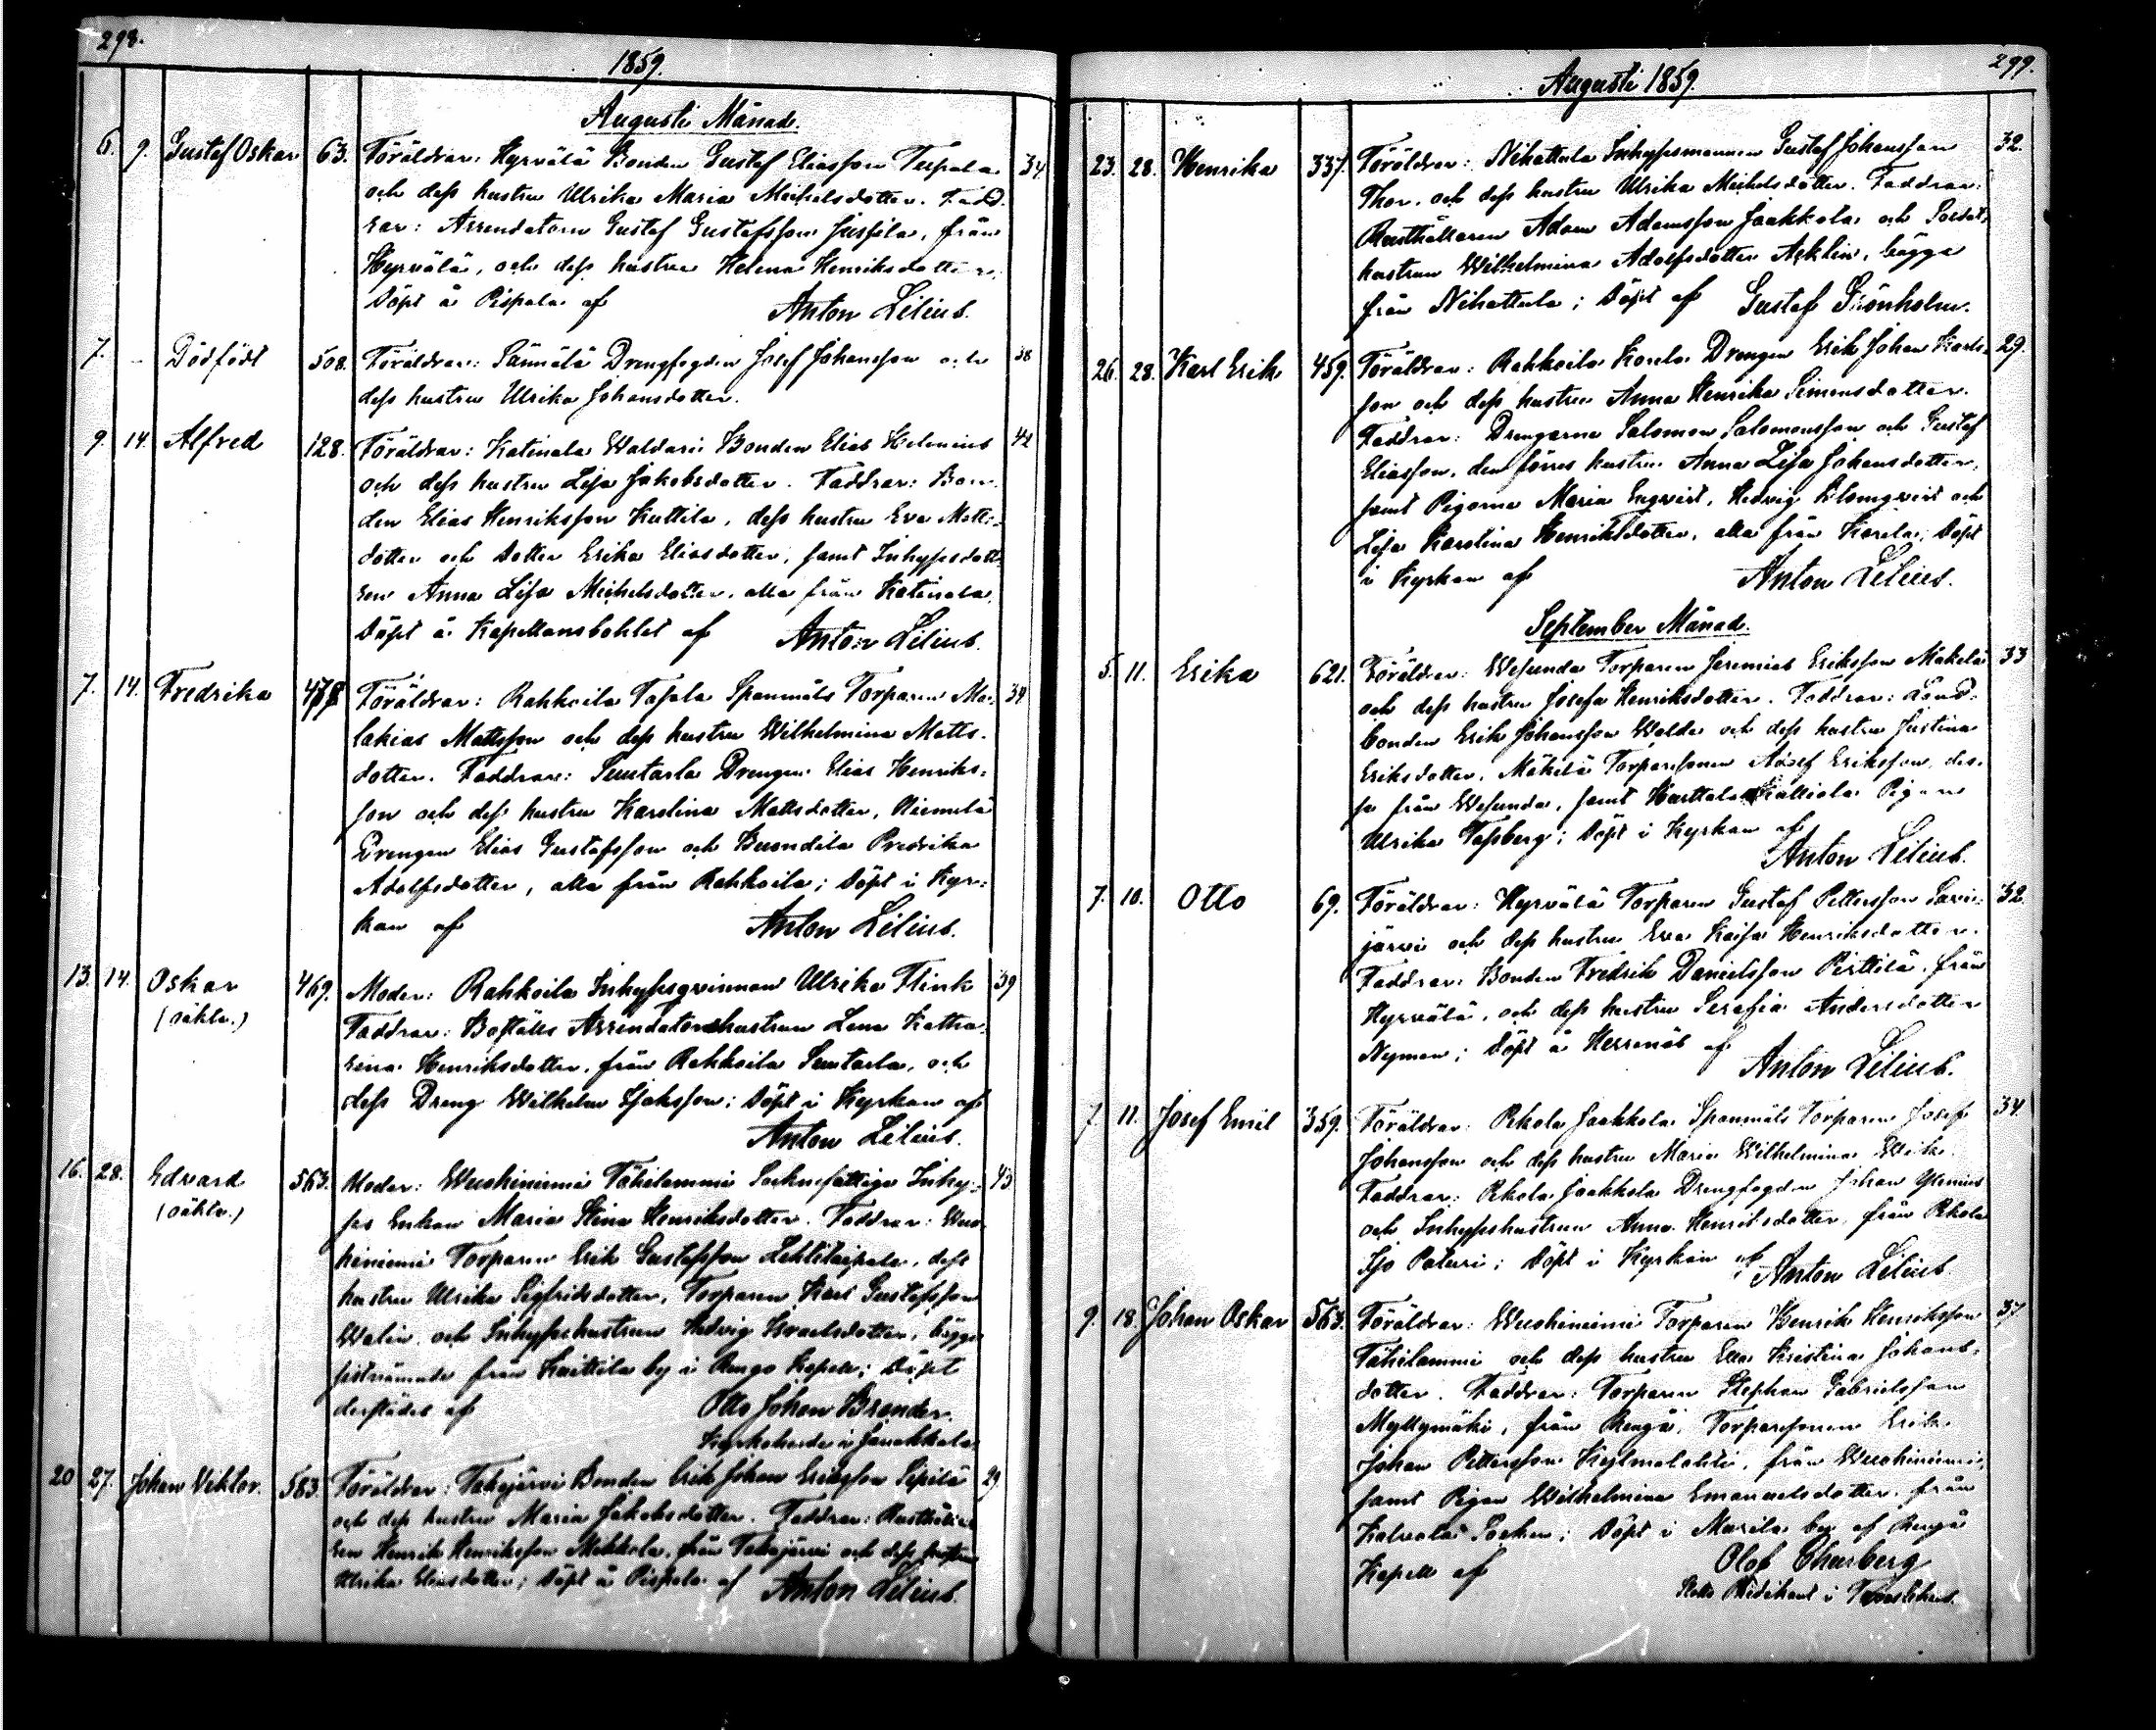 298.
1859.
Augusti Månad.
6. 9. Gustaf Oskar 63. Föräldrar: Hyrvälä Bonden Gustaf Eliasson Teipala 34.
och dess hustru Ulrika Maria Michelsdotter. Fadd-
rar: Arrendatorn Gustaf Gustafsson Jussila, från
Hyrvälä, och dess hustru Helena Henriksdotter;
döpt å Pispala af Anton Lilius.
7. – Dödfödt 508. Föräldrar: Sännälä Drengfogden Josef Johansson och 38
dess hustru Ulrika Johansdotter.
9. 14. Alfred 128. Föräldrar: Katinala Waldari Bonden Elias Helenius 42
och dess hustru Lisa Jakobsdotter. Faddrar: Bon-
den Elias Henriksson Kuttila, dess hustru Eva Matts-
dotter och dotter Erika Eliasdotter, samt Inhysesdott-
ren Anna Lisa Michelsdotter, alla från Katinala,
döpt å Kapellansbohlet af Anton Lilius.
7. 14. Fredrika 478 Föräldrar: Rahkoila Tasala Spanmåls Torparen Ma- 34
lakias Mattsson och dess hustru Wilhelmina Matts-
dotter. Faddrar: Suntarla Drengen Elias Henriks-
son och dess hustru Karolina Mattsdotter, Niemelä
Drengen Elias Gustafsson och Fredrika
Adolfsdotter, alla från Rahkoila; döpt i Kyr-
kan af Anton Lilius.
13. 14. Oskar 469. Moder: Rahkoila Inhysesqvinnan Ulrika Flink 39
(oäkta.) Faddrar: Boställs Arrendatorshustrun Lena Katha-
rina Henriksdotter, från Rahkoila Suntarla, och
dess Dreng Wilhelm Isaksson; döpt i Kyrkan af
Anton Lilius.
16. 28. Edvard 563. Moder: Wuohiniemi Tähilammi Socknefattiga Inhy- 43
(oäkta.) ses Enkan Maria Stina Henriksdotter. Faddrar: Wuo-
hiniemi Torparen Erik Gustafsson dess
hustru Ulrika Sigfridsdotter, Torparen Karl Gustafsson
Walin och Inhyseshustrun Hedvig Israelsdotter, bägge
sistnämnde från Kaittila by i Rengo Kapell; döpt
derstädes af Otto Johan Brander.
Kyrkoherde i Janakkala
20 27. Johan Viktor. 583. Föräldrar: Takajärvi Bonden Erik Johan Eriksson Sipilä 29.
och dess hustru Maria Jakobsdotter. Faddrar: Rusthålla-
ren Henrik Henriksson Mikkola, från Takajärvi och dess hustru
Ulrika Eliasdotter; döpt å Pispala af Anton Lilius.
299.
Augusti 1859.
23. 28. Henrika 337. Föräldrar: Nihattula Inhysesmannen Gustaf Johansson 32.
Thor, och dess hustru Ulrika Michelsdotter. Faddrar:
Rusthållaren Adam Adamsson Jaakkola och Soldat-
hustrun Wilhelmina Adolfsdotter bägge
från Nihattula; döpt af Gustaf Grönholm.
26. 28. Karl Erik 459. Föräldrar: Rahkoila Karela Drengen Erik Johan Karls- 29.
son och dess hustru Anna Henrika Simonsdotter.
Faddrar: Drengarne Salomon Salomonsson och Gustaf
Eliasson, den förres hustru Anna Lisa Johansdotter,
samt Pigorna Maria Engqvist, Hedvig Blomqvist och
Lisa Karolina Henriksdotter, alla från Karela; döpt
i Kyrkan af Anton Lilius.
September Månad.
5. 11. Erika 621. Föräldrar: Wesunda Torparen Jeremias Eriksson Mäkelä 33
och dess hustru Josefa Henriksdotter. Faddrar: Land-
bonden Erik Johansson Walda och dess hustru Justina
Eriksdotter, Mäkelä Torparesonen Adolf Eriksson, des-
se från Wesunda, samt Hattala Pigan
Ulrika Tassberg; döpt i Kyrkan af
Anton Lilius.
7. 10. Otto 69. Föräldrar: Hyrvälä Torparen Gustaf Pettersson Savi- 32.
järvi och dess hustru Eva Kaisa Henriksdotter.
Faddrar: Bonden Fredrik Danielsson Pirttilä, från
Hyrvälä, och dess hustru Serafia Andersdotter
Nyman; döpt å Herrenäs af
Anton Lilius.
7. 11. Josef Emil 359. Föräldrar: Pekola Jaakkola Spanmåls Torparen Josef 34.
Johansson och dess hustru Maria Wilhelmina
Faddrar: Pekola Jaakkola Drengfogden Johan
och Inhyseshustrun Anna Henriksdotter, från Pekola
Iso Paturi; döpt i Kyrkan af Anton Lilius
9. 18. Johan Oskar 563. Föräldrar: Wuohiniemi Torparen Henrik Henriksson 37
Tähilammi och dess hustru Eva Kristina Johans-
dotter. Faddrar: Torparen Stephan Gabrielsson
Myllymäki, från Rengå, Torparesonen Erik
Johan Pettersson Kylmälahti, från Wuohiniemi,
samt Pigan Wilhelmina Emanuelsdotter från
Kalvola Socken; döpt i Muurila by af Rengå
Kapell af Olof Churberg
Predikant i Tavastehus.